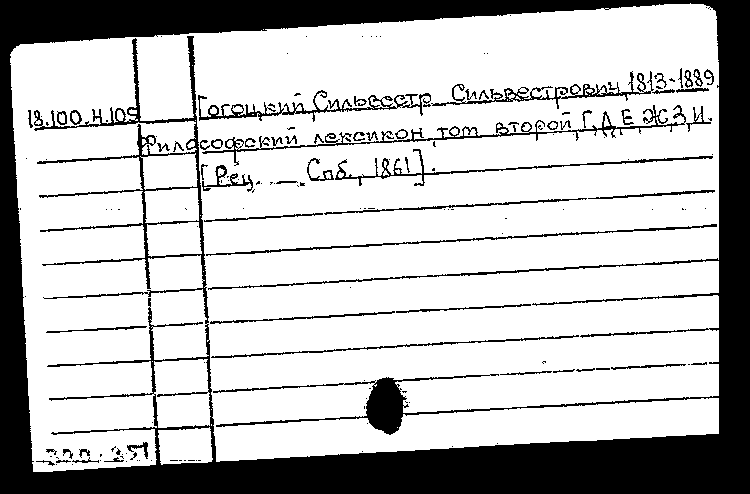 18.100.Н.109 Гогоцкий, Сильвестр Сильвестрович, 1813-1889
Философский лексикон, том второй, Г, Д, Е, Ж, З, И.
[Рец. __. Спб., 1861].